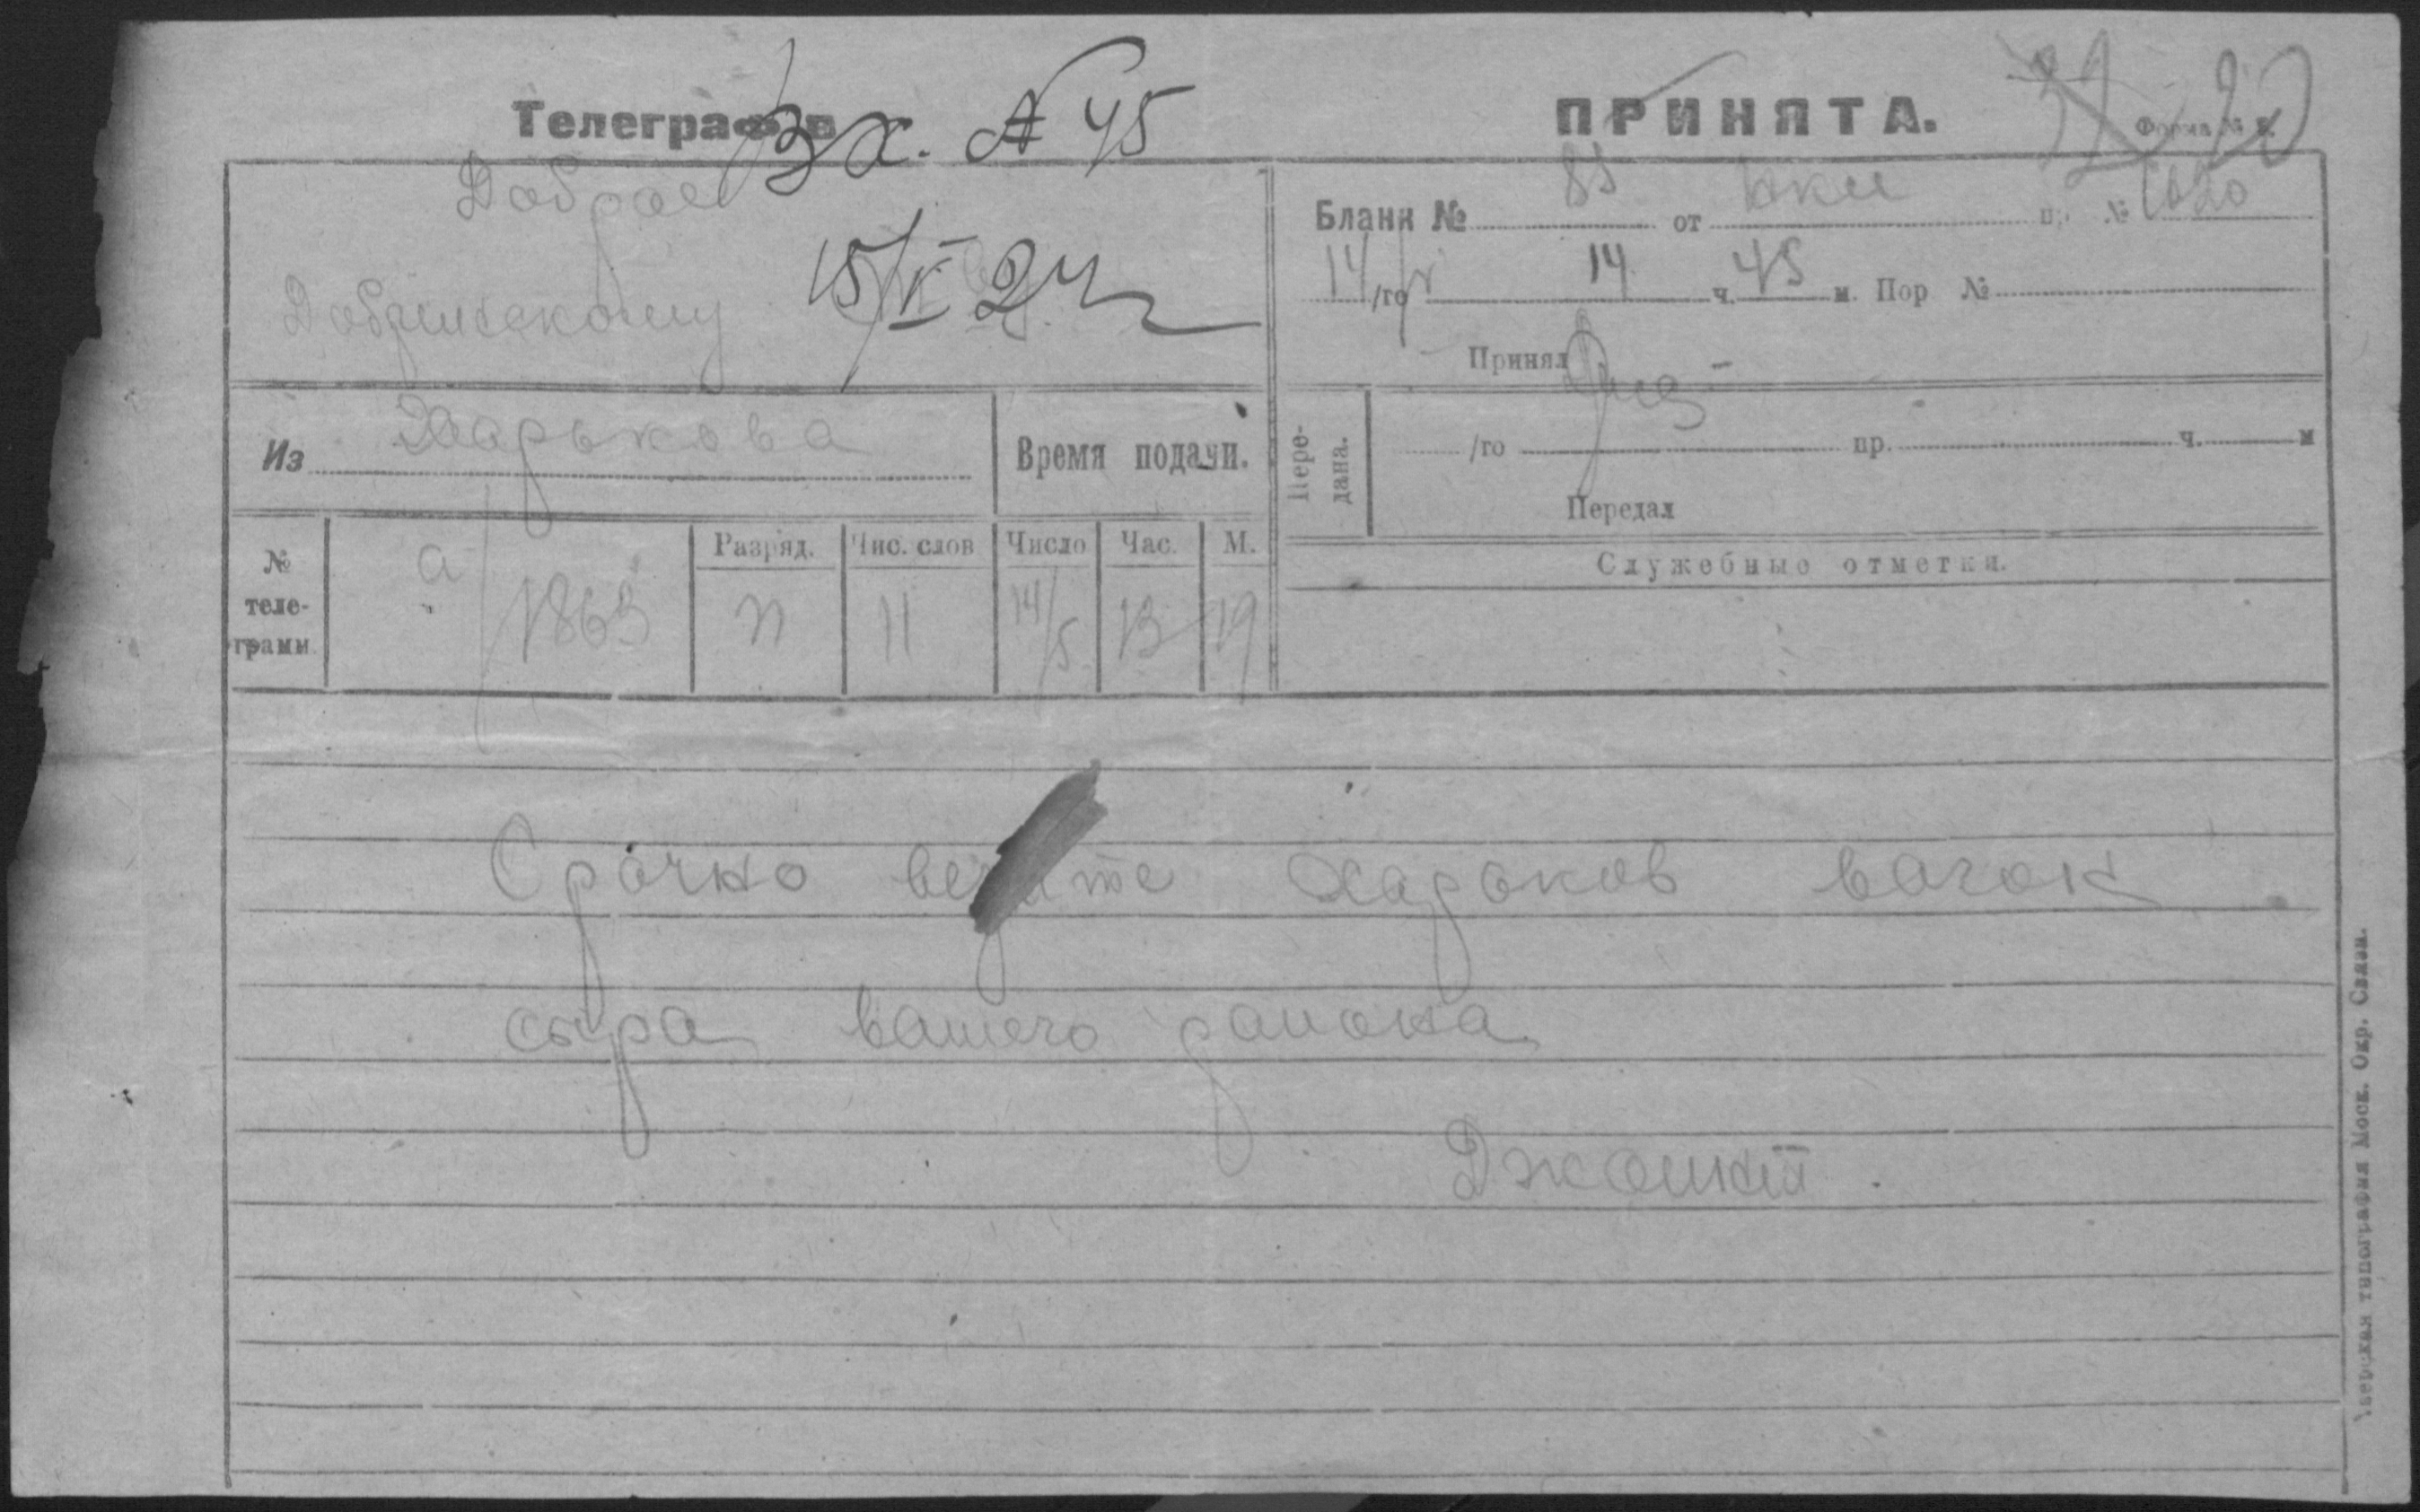 Телеграф
Вх. № 45
ПРИНЯТА.
Форма №
Доброе
15/V 24
Добринскому
Бланк № 83 от Юки пр. № 1020
14/го V 14 ч. 45 м. Пор №
Принял
Из Харькова
Время подачи.
Пере-
дана.
/го пр. ч. м
Передал
№
теле-
грамм.
а/1863
Разряд. Чис. слов Число Час. М.
п 11 14/5 13 19
Служебные отметки.
Срочно везите Харьков вагон
сыра вашего района
Джоинт.
Тверская типография Моск. Окр. Связи.